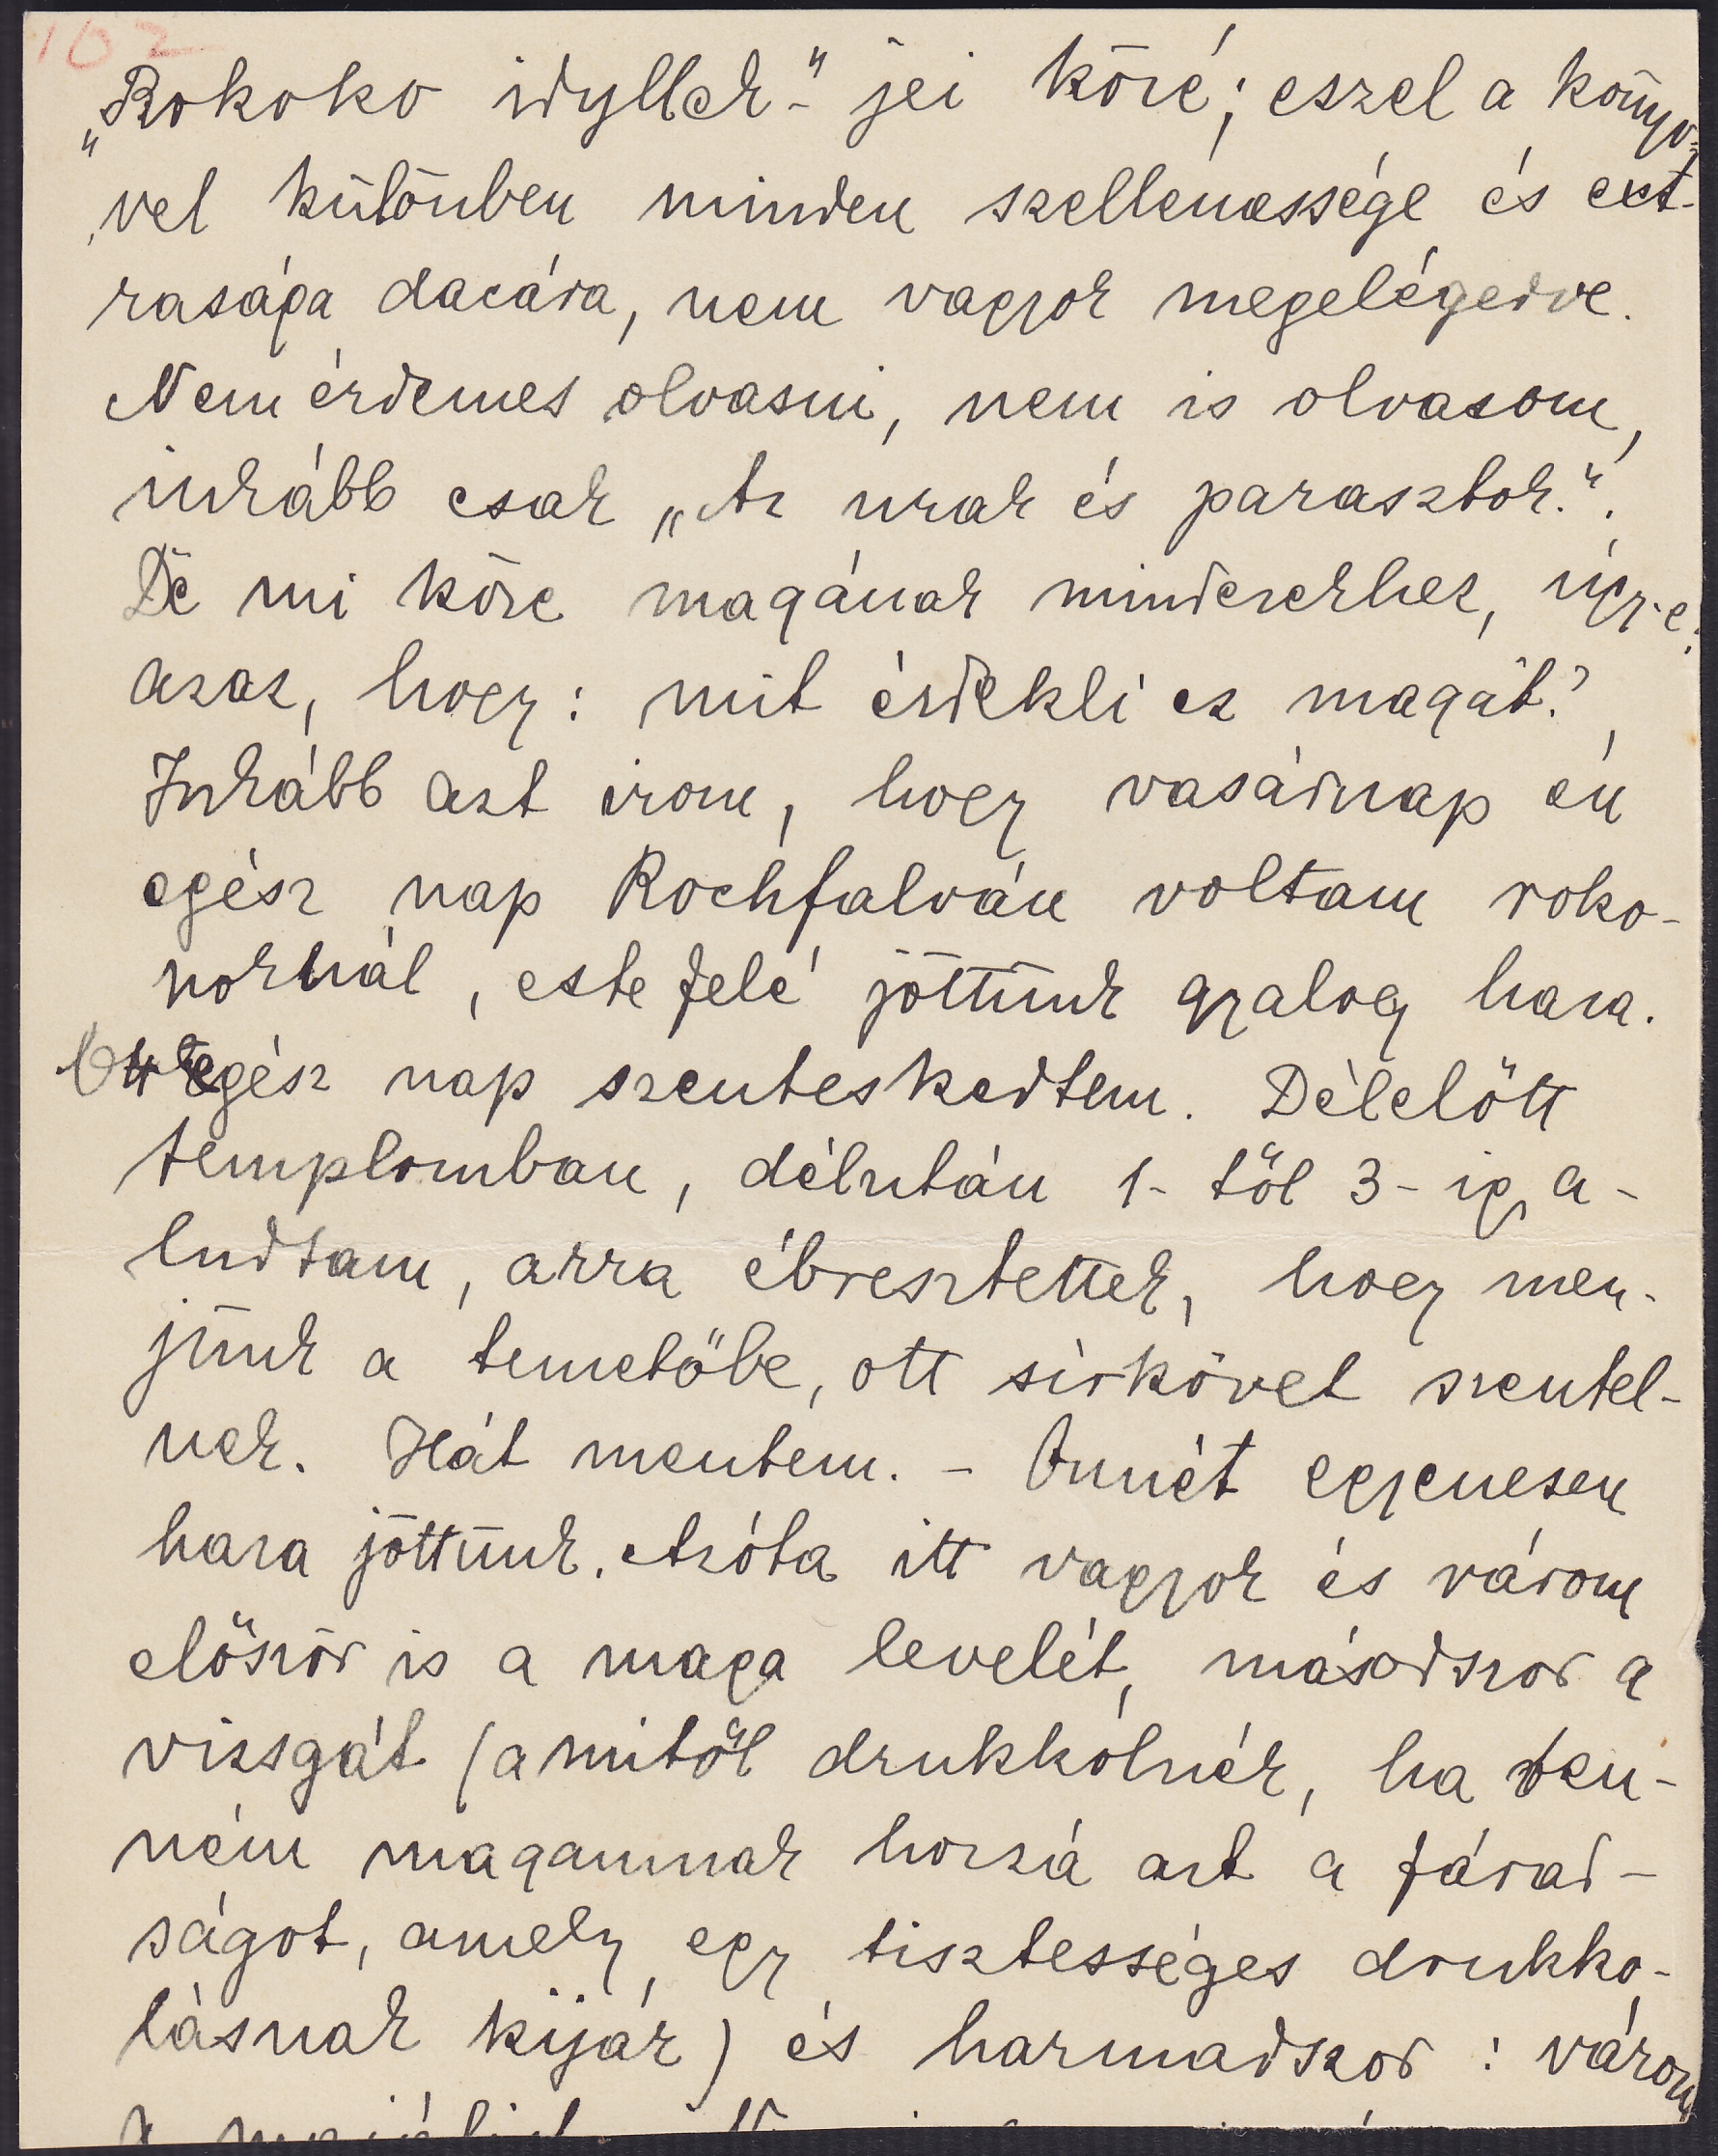 102
„Rokoko idyllek-“ jei közé; ezzel a könyv-
vel különben minden szellemessége és ext-
rasága dacára, nem vagyok megelégedve.
Nem érdemes olvasni, nem is olvasom,
inkább csak „Az urak és parasztok.“.
De mi köze magának mindezekhez, úgy-e?
azaz, hogy: mit érdekli ez magát?
Inkább azt irom, hogy vasárnap én
egész nap Rochfalván voltam roko-
noknál, este felé jöttünk gyalog haza.
Ott egész nap szenteskedtem. Délelőtt
templomban, délután 1-től 3-ig a-
ludtam, arra ébresztettek, hogy men-
jünk a temetőbe, ott sirkövet szentel-
nek. Hát mentem. - Onnét egyenesen
haza jöttünk. Azóta itt vagyok és várom
először is a maga levelét, másodszor a
vizsgát (amitől drukkolnék, ha ven-
ném magamnak hozzá azt a fárad-
ságot, amely egy tisztességes drukko-
lásnak kijár) és harmadszor : várom